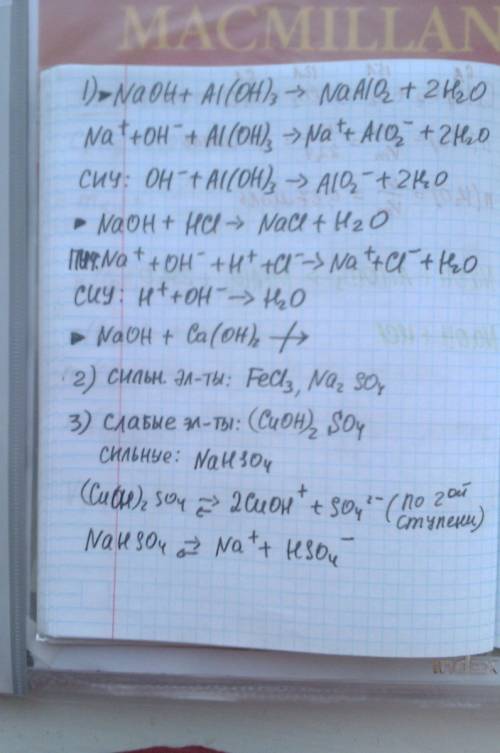 MACMILLAN
1) ▸ NaOH + Al(OH)₃ → NaAlO₂ + 2H₂O
Na⁺ + OH⁻ + Al(OH)₃ → Na⁺ + AlO₂⁻ + 2H₂O
СИУ: OH⁻ + Al(OH)₃ → AlO₂⁻ + 2H₂O
▸ NaOH + HCl → NaCl + H₂O
ПИУ: Na⁺ + OH⁻ + H⁺ + Cl⁻ → Na⁺ + Cl⁻ + H₂O
СИУ: H⁺ + OH⁻ → H₂O
▸ NaOH + Ca(OH)₂ ↛
2) сильн. эл-ты: FeCl₃, Na₂SO₄
3) слабые эл-ты: (CuOH)₂SO₄
сильные: NaHSO₄
(CuOH)₂SO₄ ⇄ 2CuOH⁺ + SO₄²⁻ (по 2ой
ступени)
NaHSO₄ ⇄ Na⁺ + HSO₄⁻
index